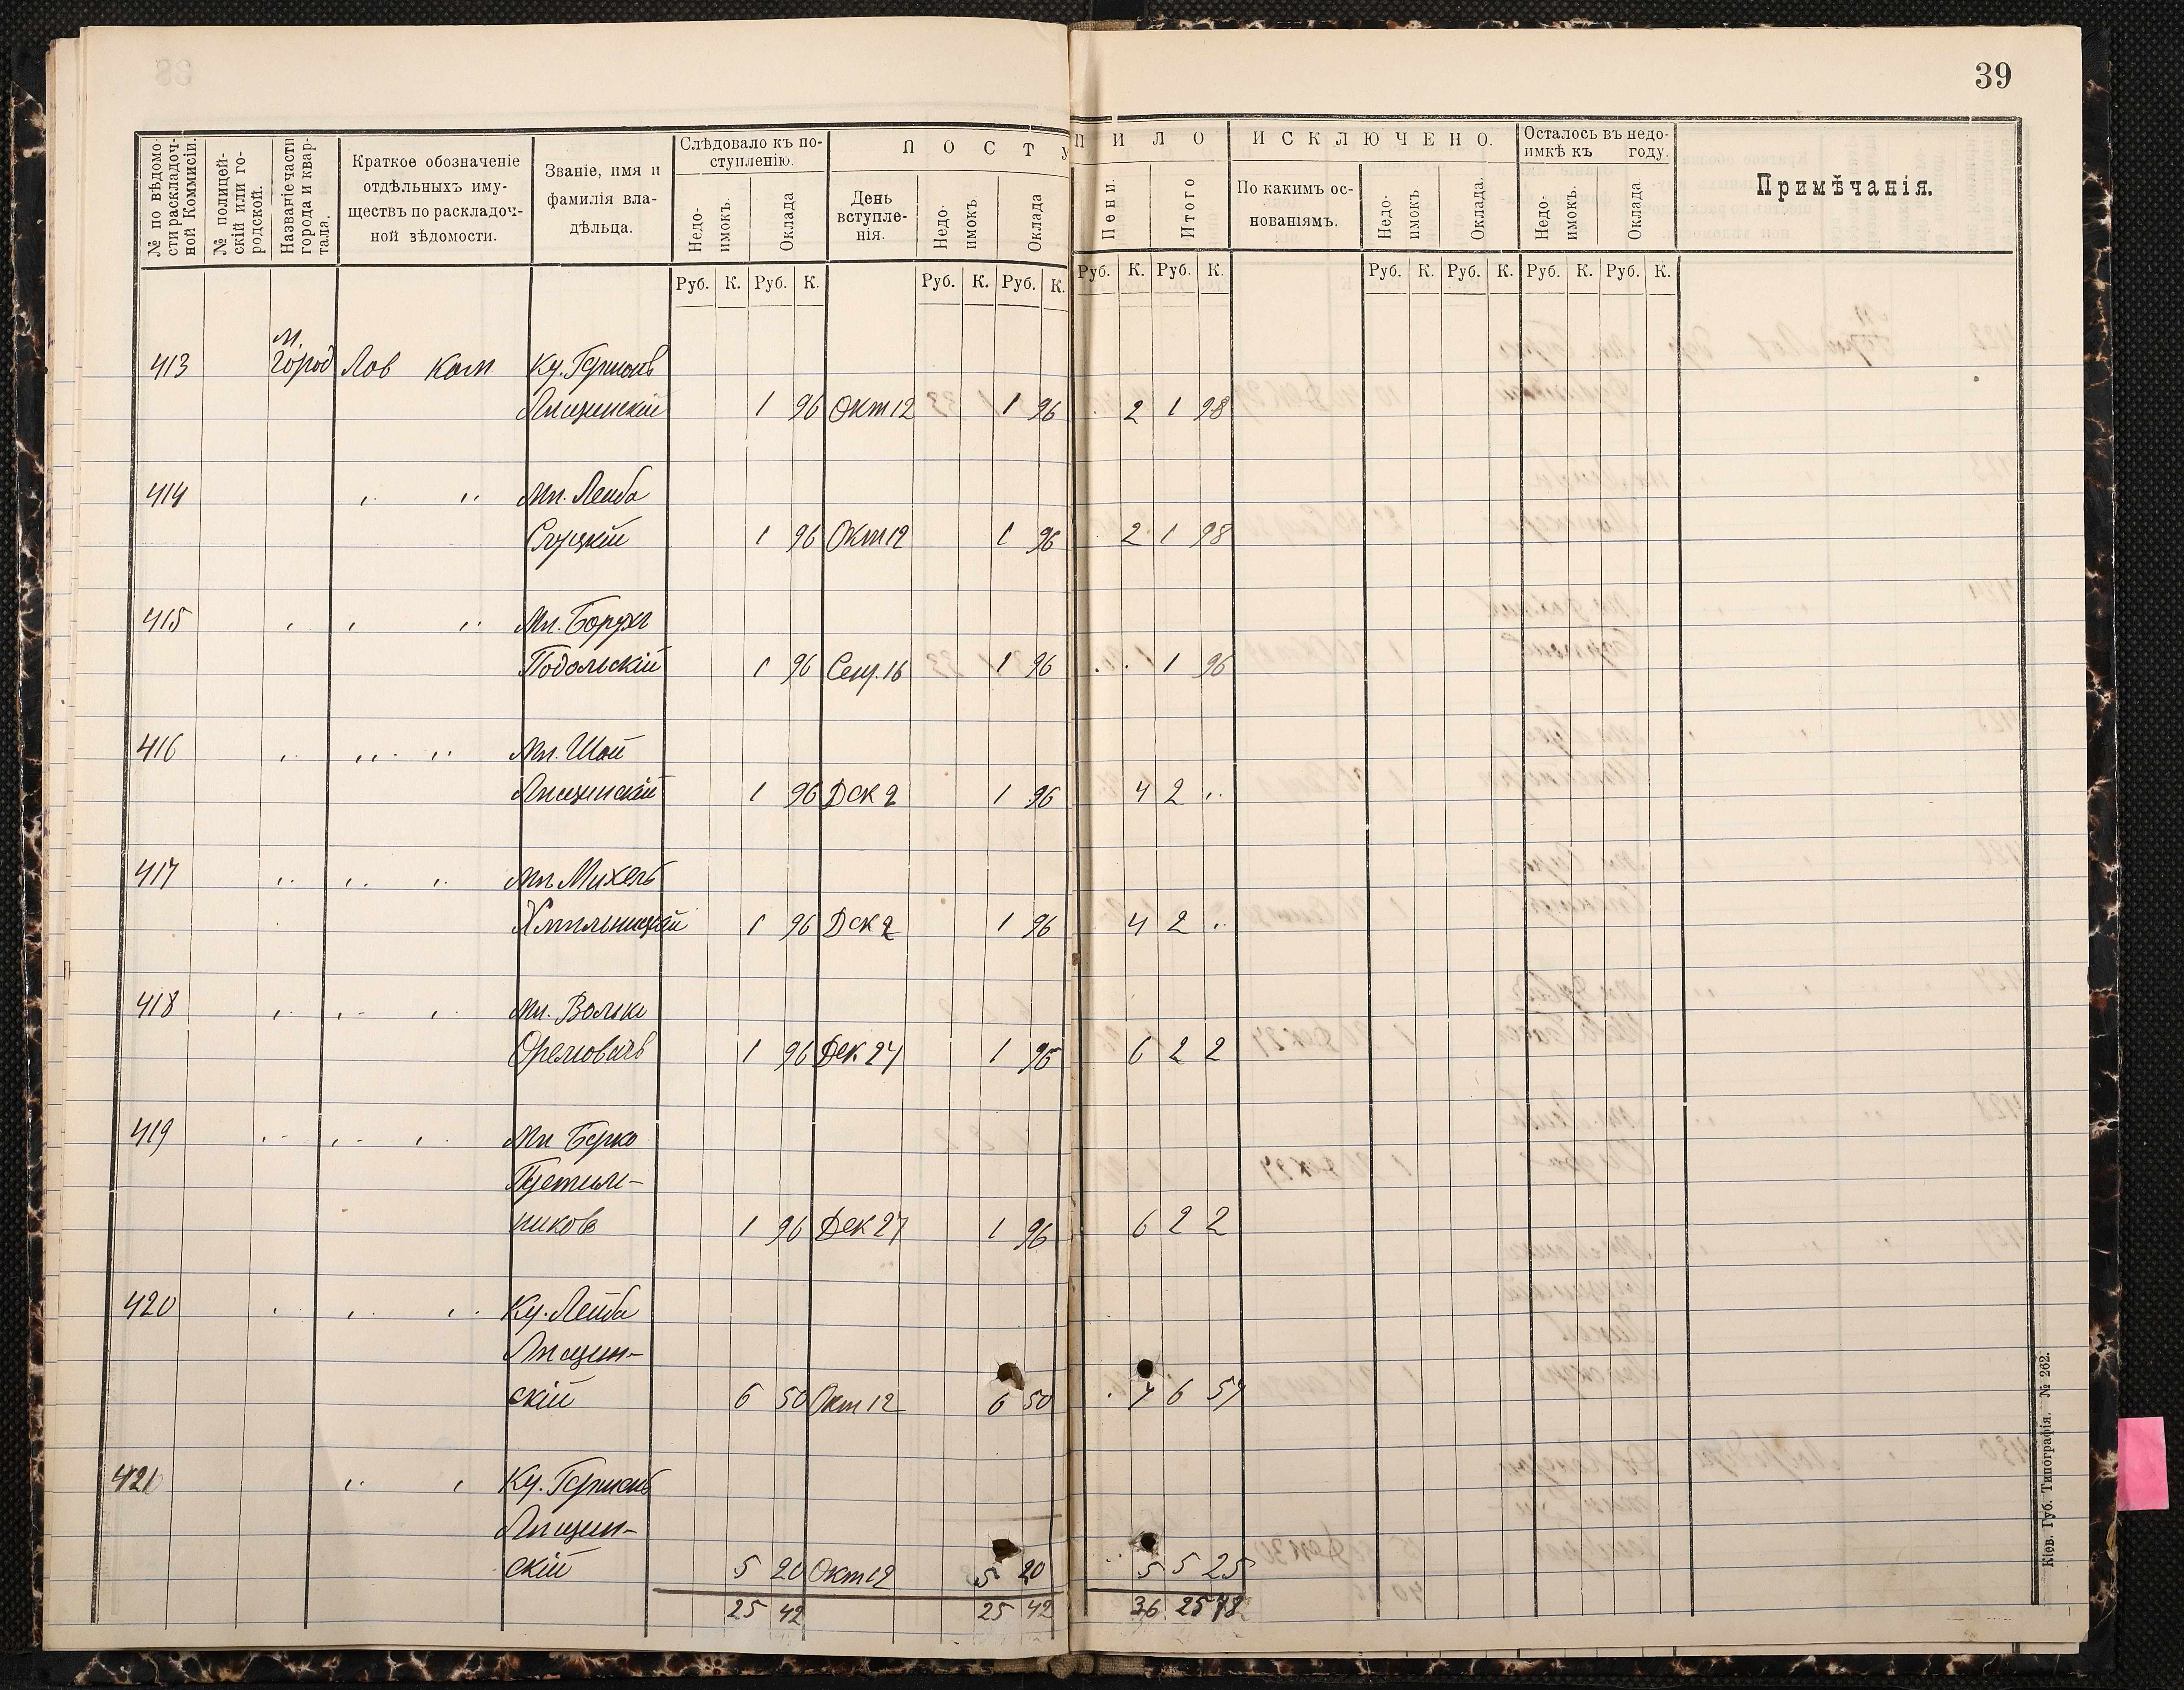 39
№ по вѣдомости раскладочной Коммисіи.
№ полицейскій или городской.
Названіе части города и квартала.
Краткое обозначеніе отдѣльныхъ имуществъ по раскладочной вѣдомости.
Званіе, имя и фамилія владѣльца.
Слѣдовало къ поступленію.
Недоимокъ. Оклада
ПОСТУПИЛО
День вступленія. Недоимокъ Оклада Пени. Итого
ИСКЛЮЧЕНО.
По какимъ основаніямъ. Недоимокъ Оклада.
Осталось въ недоимкѣ къ году.
Недоимокъ. Оклада.
Примѣчанія.
Руб. К. Руб. К. Руб. К. Руб. К. Руб. К. Руб. К. Руб. К. Руб. К. Руб. К. Руб. К.
М.
413 город Лав кам Ку. Гершонъ
Лищинскій 1 96 Окт 12 1 96 2 1 98
414 " " Мщ. Лейба
Слуцкій 1 96 Окт 12 1 96 2 1 98
415 " " " Мщ. Борух
Подольскій 1 96 Сен. 16 1 96 1 96
416 " " " Мщ. Шая
Лищинскій 1 96 Дек 2 1 96 4 2 "
417 " " " Мщ Михель
Хмельницкій 1 96 Дек 2 1 96 4 2 "
418 " " " Мщ. Волько
1 96 Дек. 27 1 96 6 2 2
419 " " " Мщ Берко
никовъ 1 96 Дек 27 1 96 6 2 2
420 " " " Ку. Лейба
Лищин-
скій 6 50 Окт 12 6 50 7 6 57
421 " " Ку. Гершонъ
Лищин-
скій 5 20 Окт 12 5 20 5 5 25
25 42 25 42 36 25 78
Кіев. Губ. Типографія. № 262.